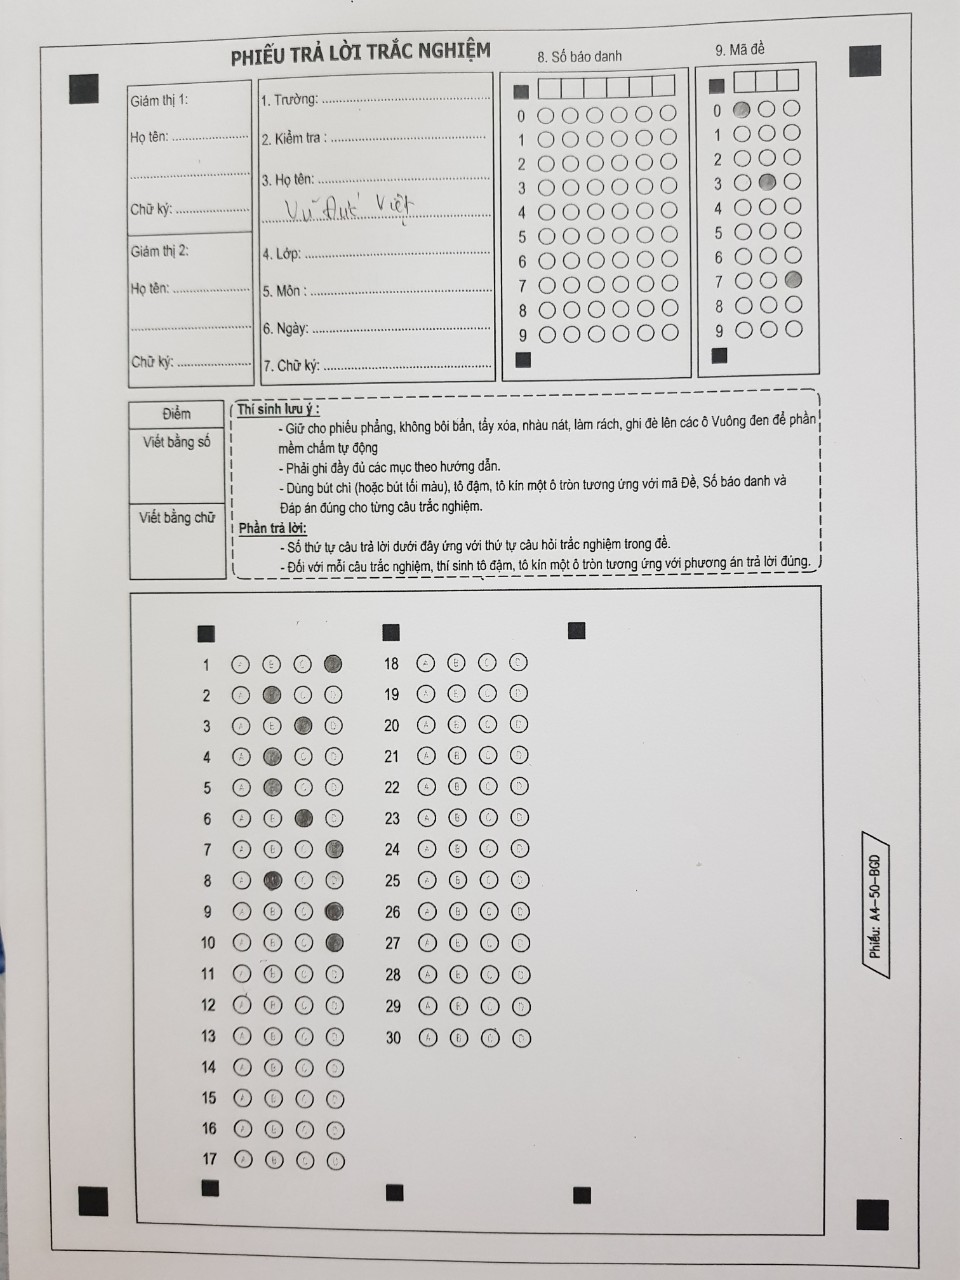 PHIẾU TRẢ LỜI TRẮC NGHIỆM
8. Số báo danh
9. Mã đề
Giám thị 1:
Họ tên:
Chữ ký:
Giám thị 2:
Họ tên:
Chữ ký:
1. Trường:
2. Kiểm tra :
3. Họ tên:
Vũ Đức Việt
4. Lớp:
5. Môn :
6. Ngày:
7. Chữ ký:
0
1
2
3
4
5
6
7
8
9
0
1
2
3
4
5
6
7
8
9
Điểm
Viết bằng số
Viết bằng chữ
Thí sinh lưu ý :
- Giữ cho phiếu phẳng, không bôi bẩn, tẩy xóa, nhàu nát, làm rách, ghi đè lên các ô Vuông đen để phần
mềm chấm tự động
- Phải ghi đầy đủ các mục theo hướng dẫn.
- Dùng bút chì (hoặc bút tối màu), tô đậm, tô kín một ô tròn tương ứng với mã Đề, Số báo danh và
Đáp án đúng cho từng câu trắc nghiệm.
Phần trả lời:
- Số thứ tự câu trả lời dưới đây ứng với thứ tự câu hỏi trắc nghiệm trong đề.
- Đối với mỗi câu trắc nghiệm, thí sinh tô đậm, tô kín một ô tròn tương ứng với phương án trả lời đúng.
1
2
3
4
5
6
7
8
9
10
11
12
13
14
15
16
17
18
19
20
21
22
23
24
25
26
27
28
29
30
Phiếu: A4-50-BGD